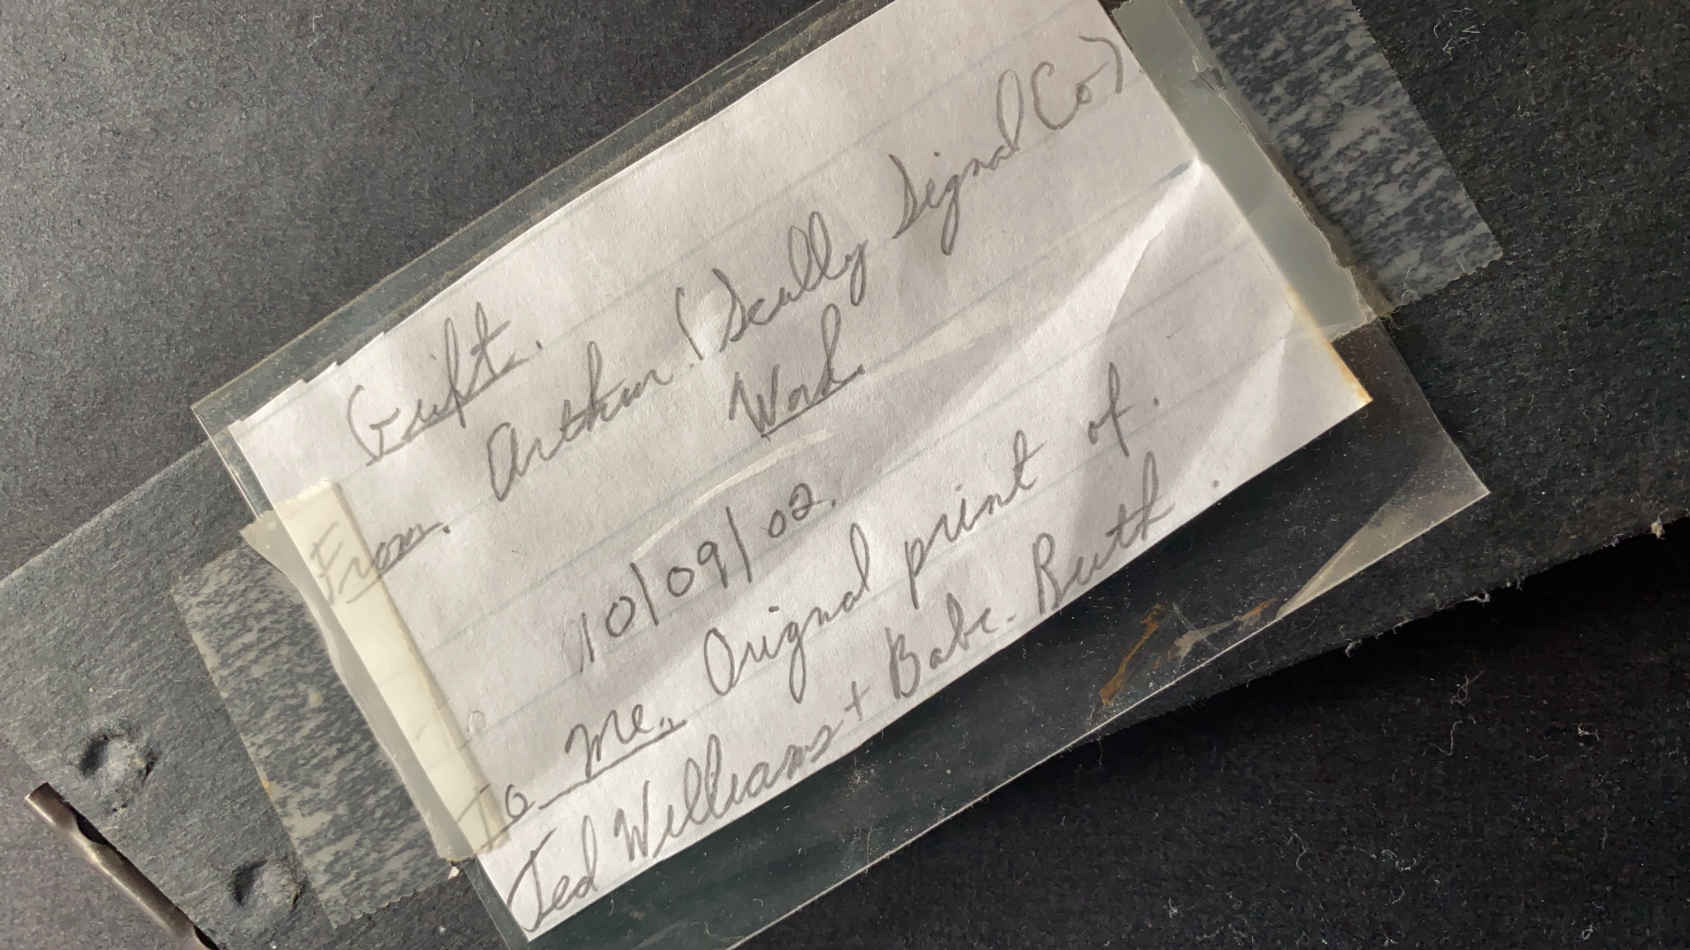 Guift.
From. Arthur. (Scully Signal Co)
Work.
10/09/02.
To me. Orignal print of.
Ted Williams + Babe. Ruth.